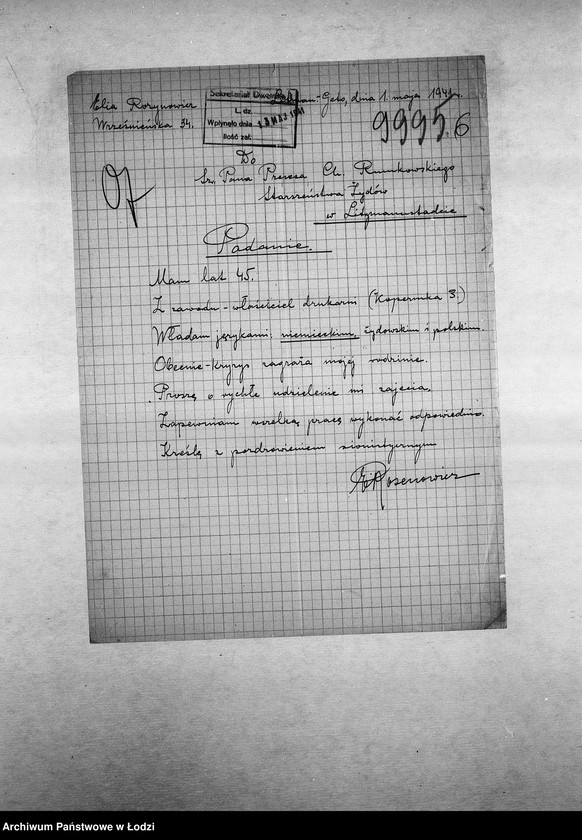 Elia Rozynowicz
Wrześnieńska 34.
Sekretariat Dworska
L. dz.
Wpłynęło dnia 13 MAJ 1941
Ilość zał.
Litzman.-Geto, dnia 1. maja 1941r.
9995/6
Do
Sz. Pana Prezesa Ch. Rumkowskiego
Starszeństwa Żydów
w Litzmannstadcie
Podanie.
Mam lat 45.
Z zawodu - właściciel drukarni (Kopernika 3.)
Władam językami: niemieckim, żydowskim i polskim.
Obecnie - kryzys zagraża mojej rodzinie.
Proszę o rychłe udzielenie mi zajęcia.
Zapewniam wszelką pracę wykonać odpowiednio.
Kreślę z pozdrowieniem sionistycznym
E. Rosenowicz
Archiwum Państwowe w Łodzi